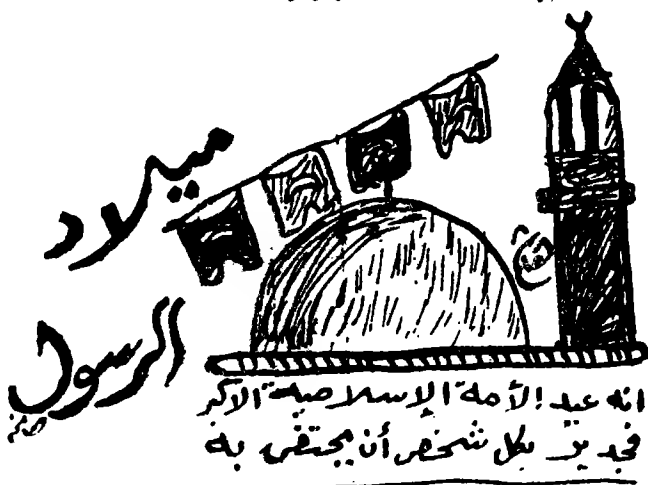 ميلاد
الرسول
انه عيد الأمة الإسلامية الأكبر
فجدير بكل شخص أن يحتفى به